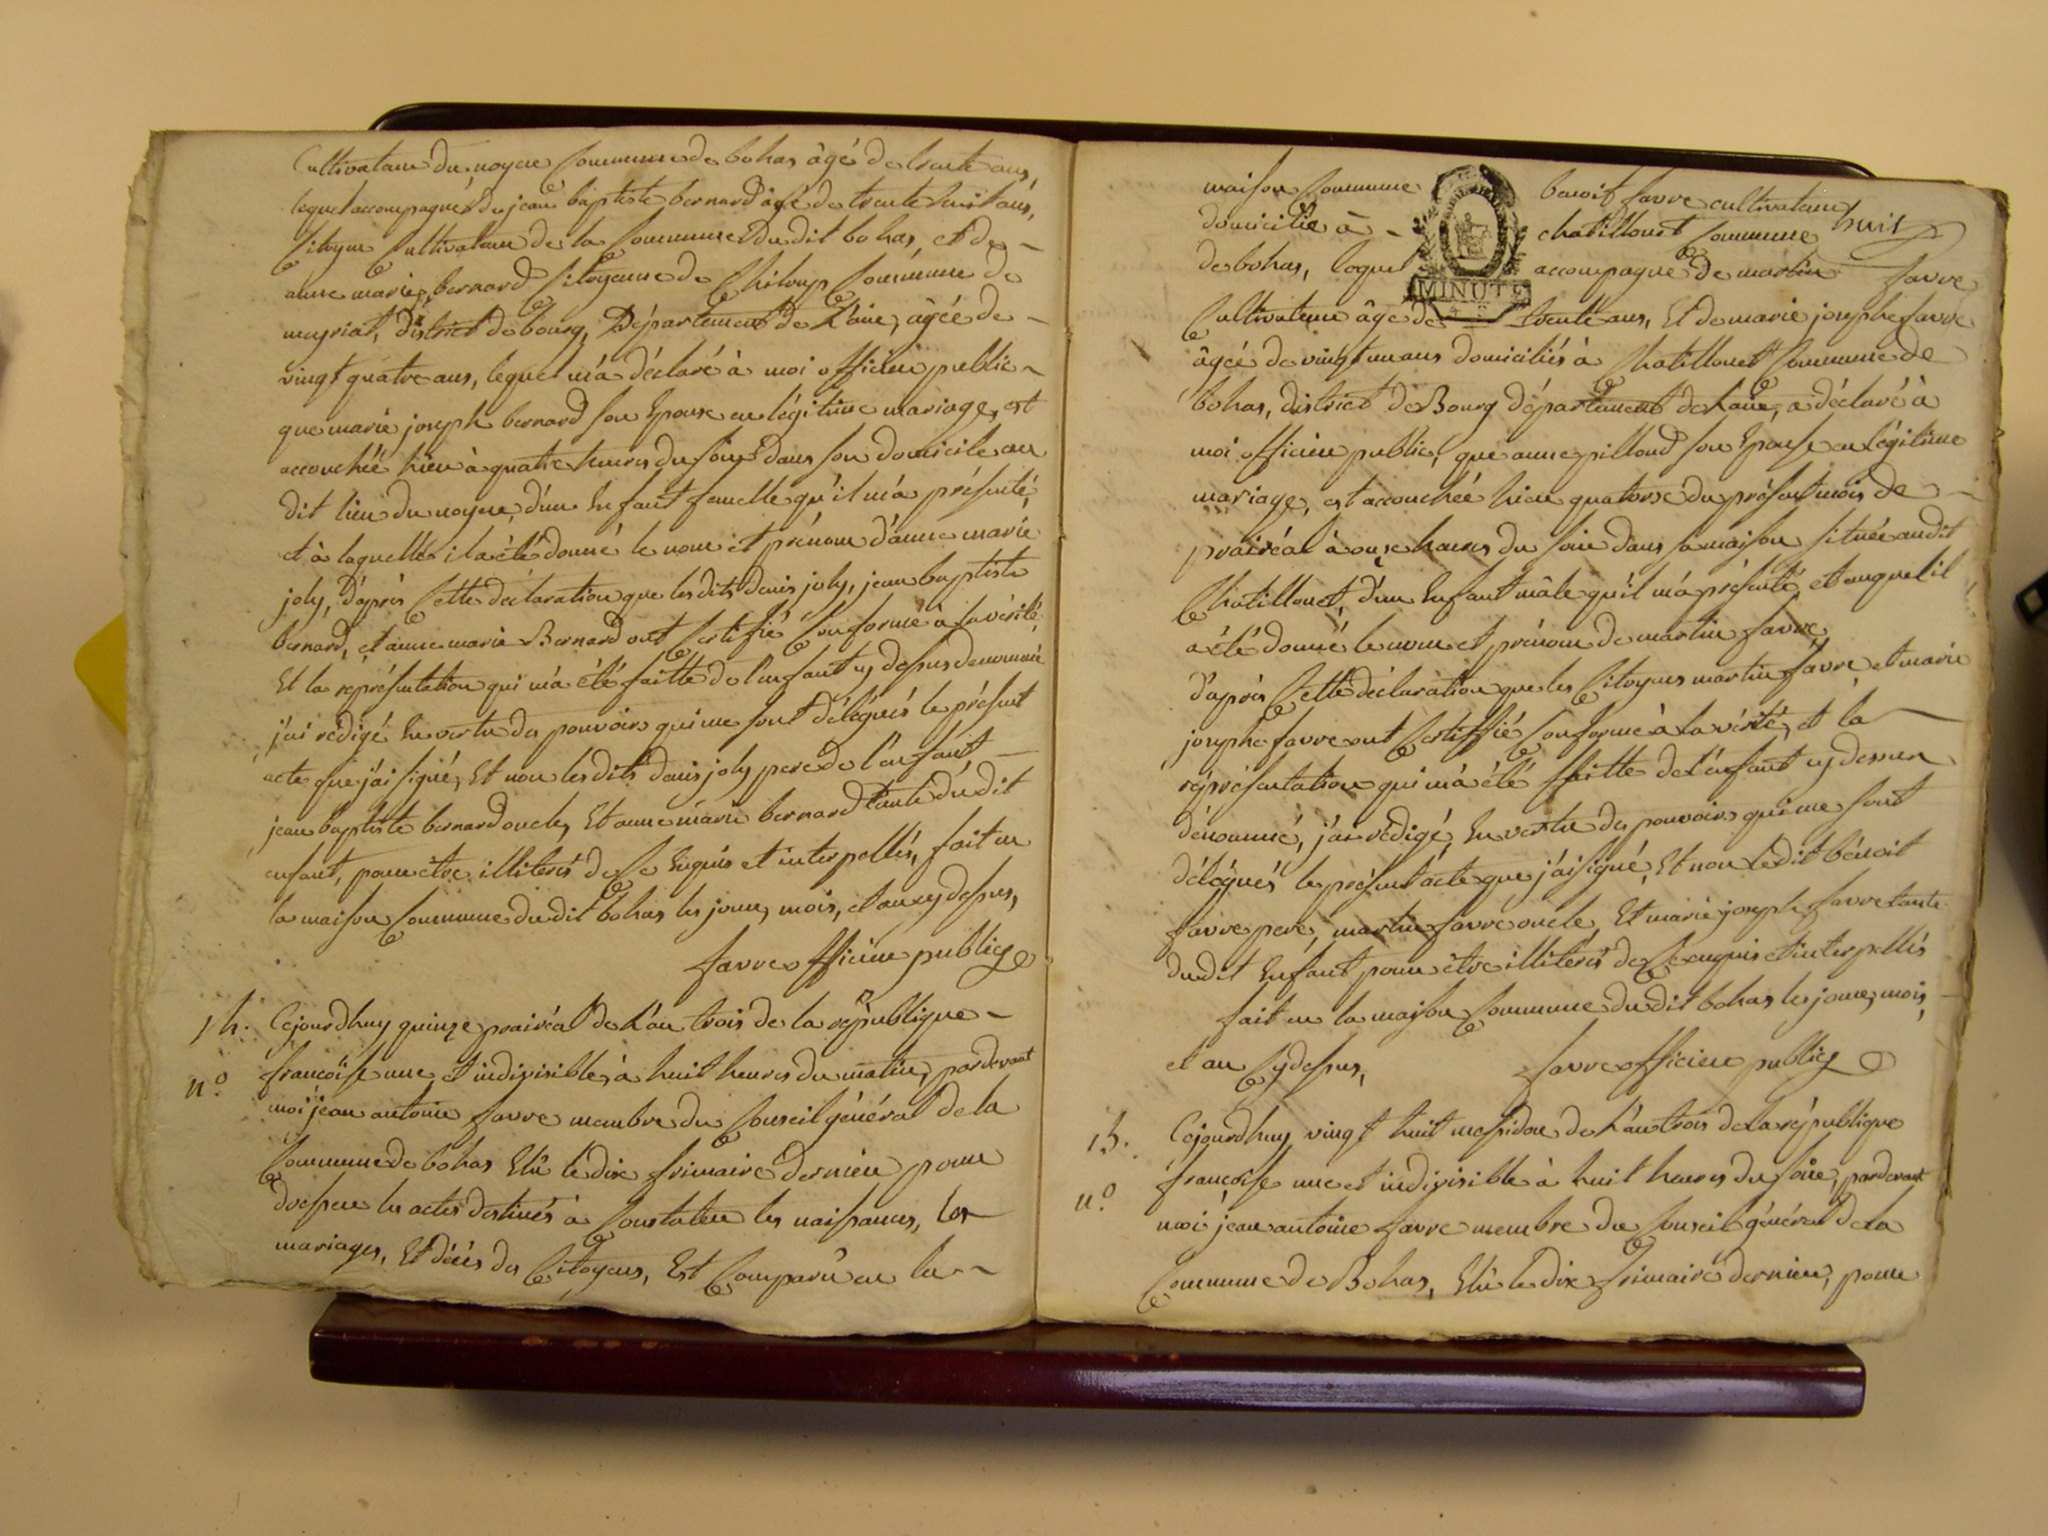 Cultivateur du noyer Commune de bohas âgé de trente ans,
lequel accompagné de jean baptiste bernard âgé de trente huit ans,
Citoyen Cultivateur de la Commune du dit bohas, et de -
anne marie bernard Citoyenne de Chiloup Commune de
meyriat, district de bourg, Département de L'ain, âgée de -
vingt quatre ans, lequel m'a déclaré à moi officier public -
que marie joseph bernard son Epouse en légitime mariage, est
accouchée hier à quatre heures du soir dans son domicile au
dit lieu du noyer, d'un Enfant femelle qu'il m'a présenté,
et à laquelle il a été donné le nom et prénom d'anne marie
joly, d'après Cette déclaration que les dits denis joly, jean baptiste
bernard, et anne marie Bernard ont Certifié Conforme à la vérité,
Et la représentation qui m'a été faitte de l'enfant cy dessus denommé
j'ai rédigé En vertu des pouvoirs qui me sont délégués le présent
acte que j'ai signé, Et non les dits denis joly pere de l'enfant -
jean baptiste bernard oncle, Et anne marie bernard tante du dit
enfant, pour être illiterés de Ce Enquis et interpellés, fait en
la maison Commune du dit bohas les jour, mois, et an cy dessus,
favre officier public
14. Cejourdhuy quinze prairéal de L'an trois de la république -
n.º françoise une et indivisible, à huit heures du matin, pardevant
moi jean antoine favre membre du Conseil général de la
Commune de bohas Elû le dix frimaire dernier pour
dresser les actes destinés à Constater les naissances, les
mariages, Et décès des Citoyens, Est Comparû en la -
huit
maison Commune benoit favre cultivateur
domicilié à - chatillonet Commune
de bohas, lequel accompagné de martin favre
MINUTE
Cultivateur âgé de trente ans, Et de marie josephe favre
âgée de vingt un ans domiciliés à Chatillonet Commune de
bohas, district de Bourg département de L'ain, a déclaré à
moi officier public, que anne pilloud son Epouse en légitime
mariage, est accouchée hier quatorze du présent mois de -
prairéal à onze heures du soir dans sa maison située audit
Chatillonet, d'un Enfant mâle qu'il m'a présenté, et auquel il
a été donné le nom et prénom de martin favre,
d'après Cette déclaration que les Citoyens martin favre, et marie
josephe favre ont Certiffié Conforme à la vérité, et la
représentation qui m'a été faitte de l'enfant cy dessus
dénommé, j'ai rédigé, En vertu des pouvoirs qui me sont
délégués le présent acte que j'ai signé, Et non ledit bénoit
favre pere, martin favre oncle, Et marie joseph favre tante
dudit Enfant pour être illiterés de Ce enquis et interpellés
fait en la maison Commune du dit bohas les jour, mois,
et an Cy dessus, favre officier public
15. Cejourdhuy vingt huit messidor de L'an trois de la république
n.º françoise une et indivisible à huit heures du soir, pardevant
moi jean antoine favre membre du Conseil général de la
Commune de Bohas, Elû le dix frimaire dernier, pour